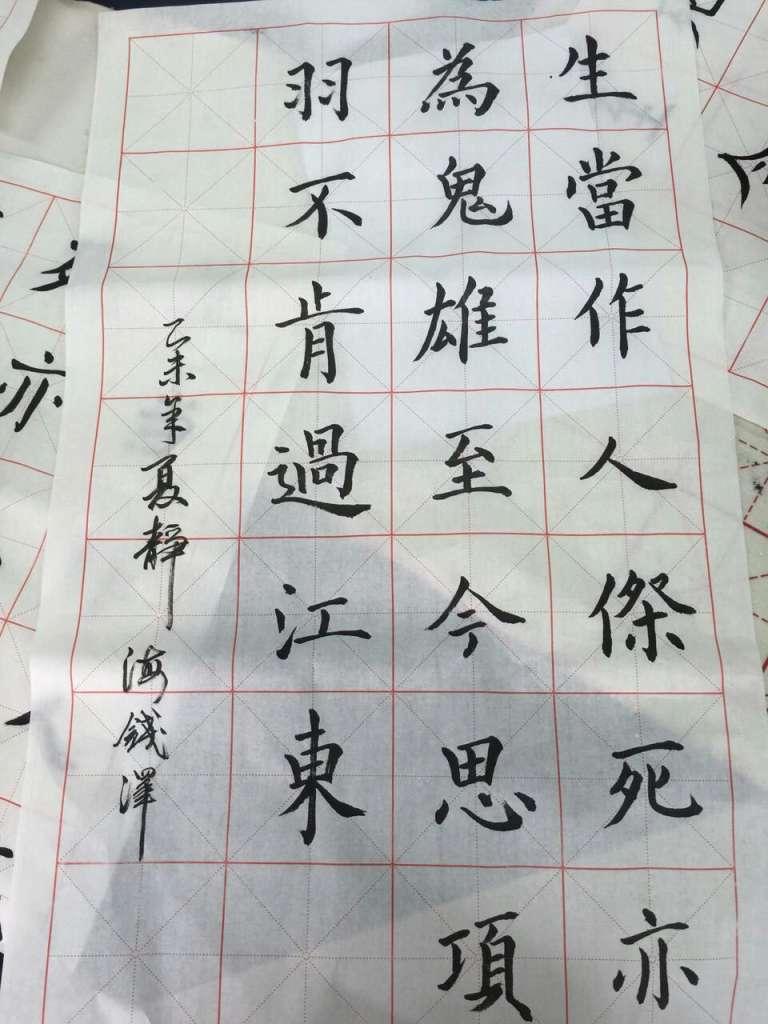 生當作人傑死亦
為鬼雄至今思項
羽不肯過江東
乙未年夏靜海錢澤